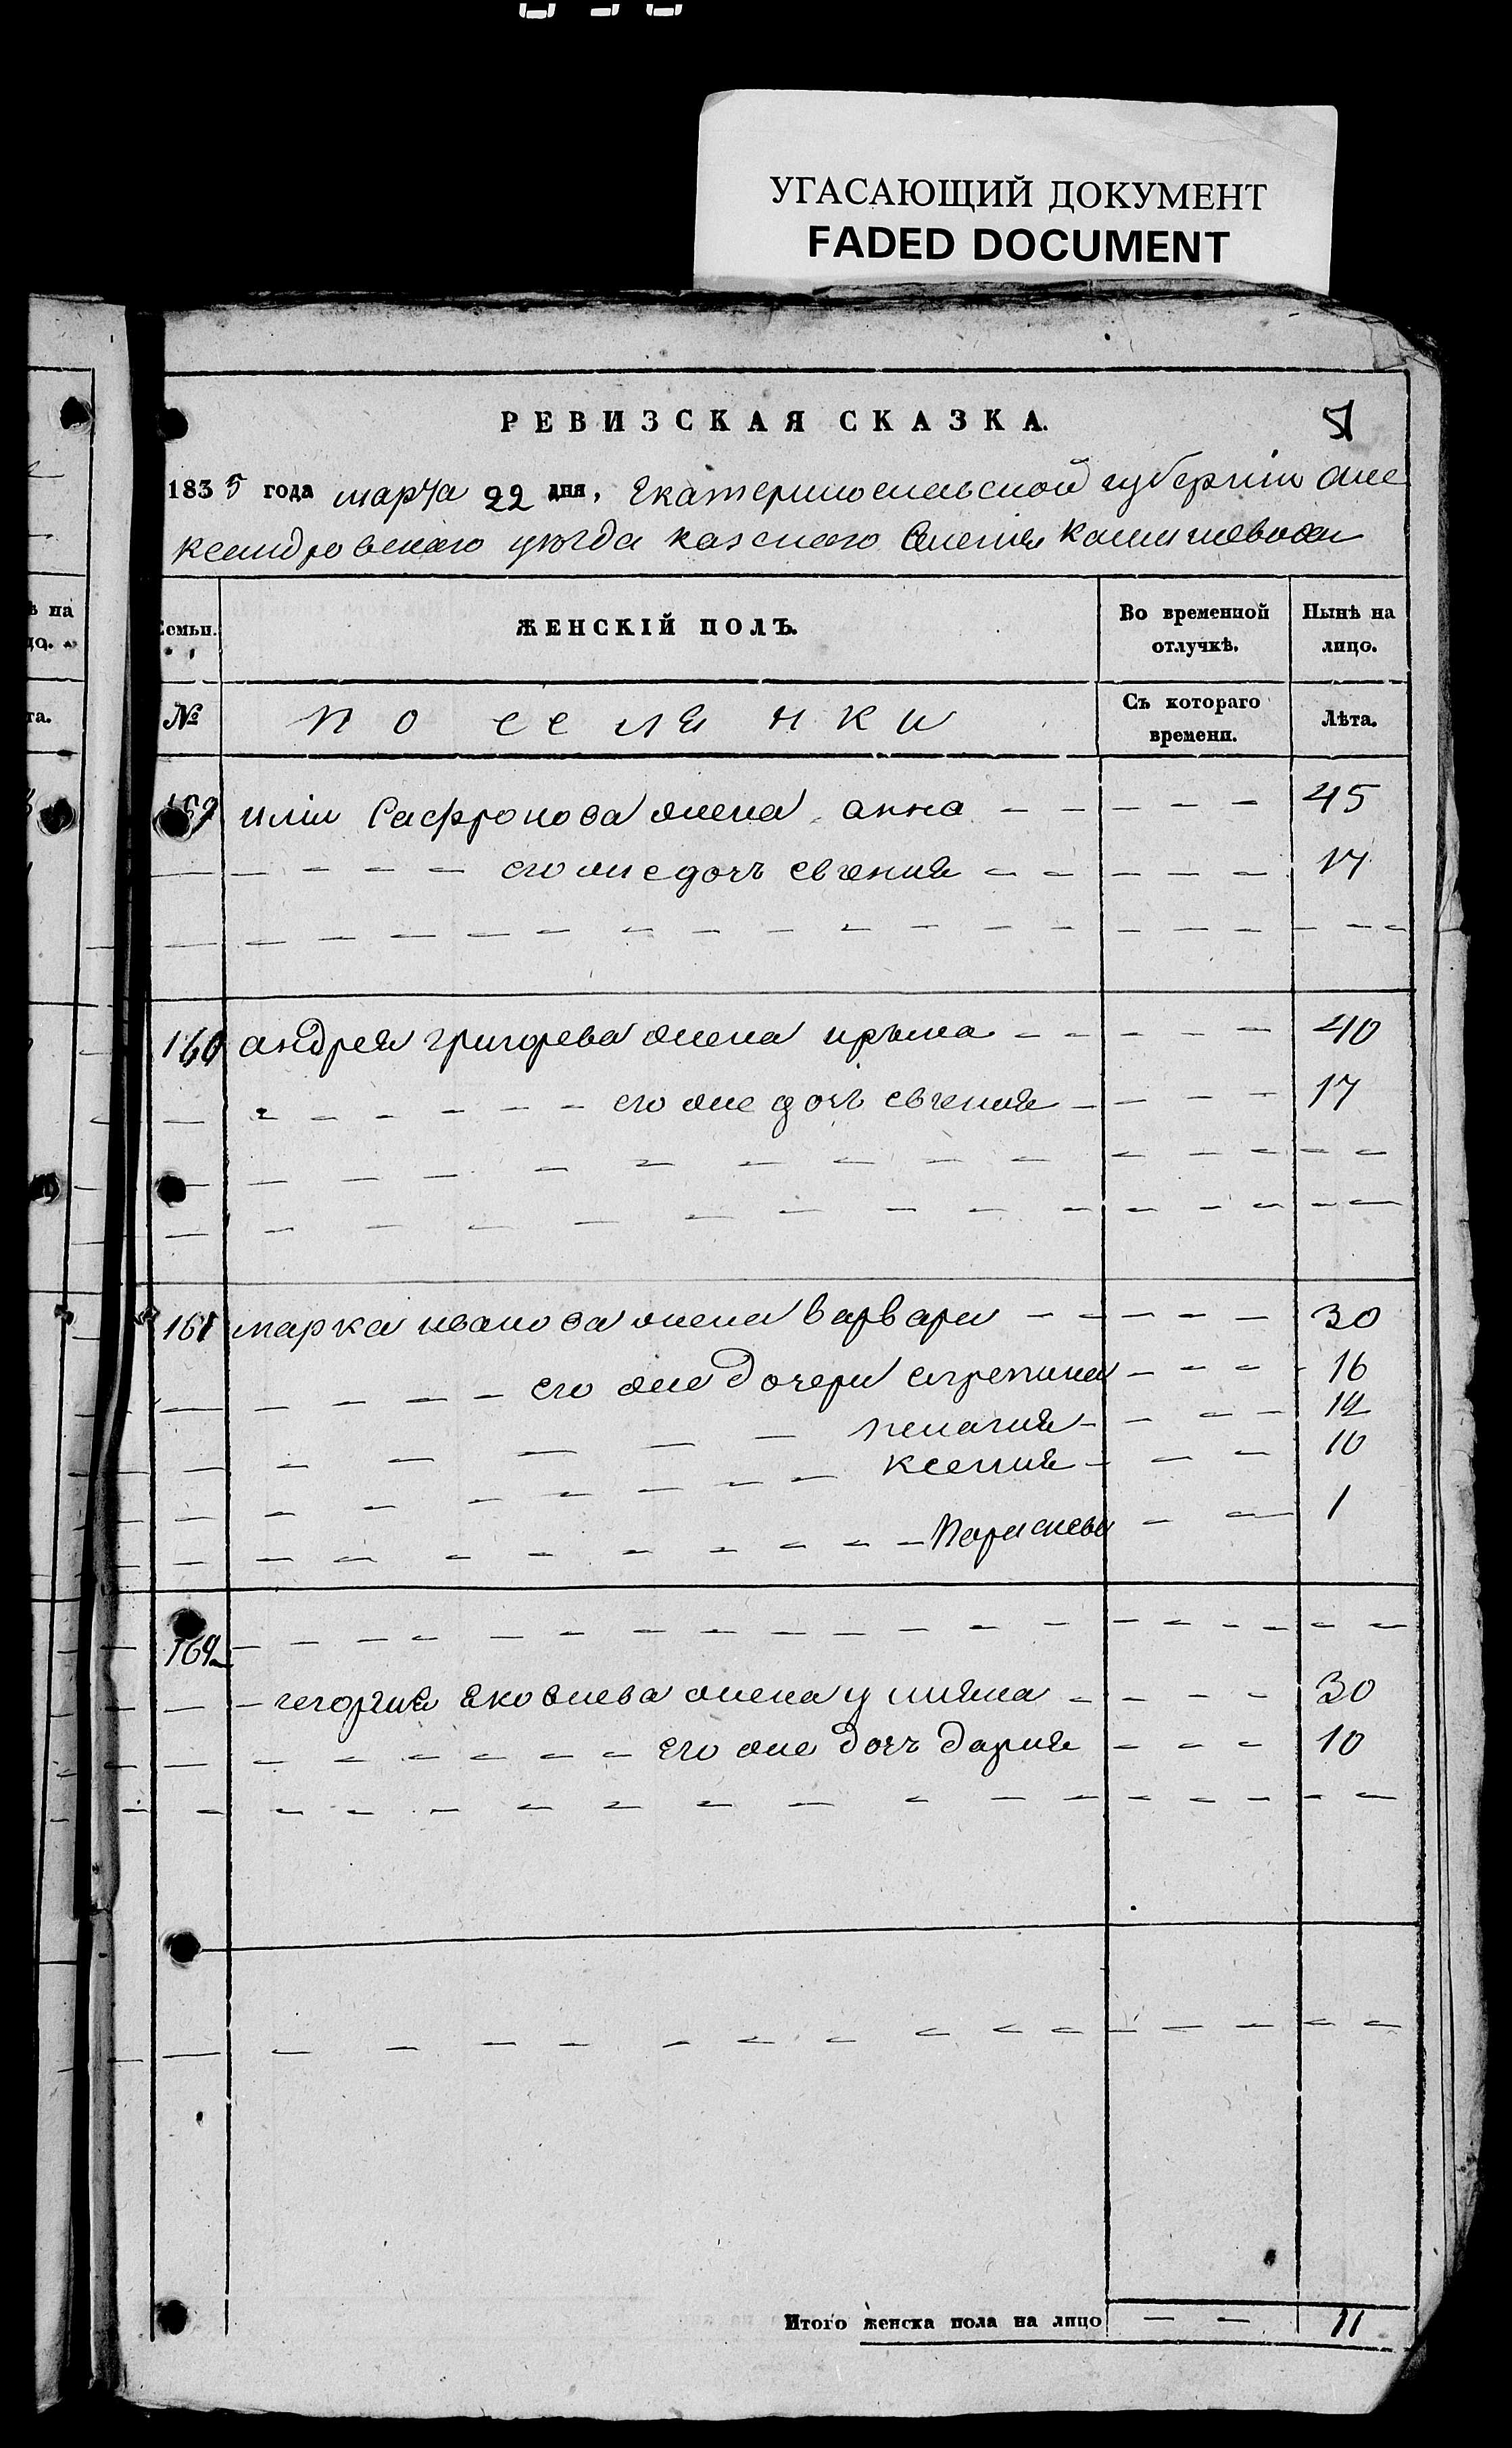 УГАСАЮЩИЙ ДОКУМЕНТ
FADED DOCUMENT
РЕВИЗСКАЯ СКАЗКА.
51
1835 года марта 22 дня, Екатеринославской губернии Але
ксандровского уѣзда казенаго Селения
Семьи. ЖЕНСКІЙ ПОЛЪ. Во временной отлучкѣ. Нынѣ на лицо.
№ поселянки Съ котораго времени. Лѣта.
159 илии Сафронова жена анна 45
его же дочь евгения 17
160 андрея григорева жена ирына 40
его же дочь евгения 17
161 марка иванова жена варвара 30
его же дочери 16
пелагия 12
ксения 10
Параскева 1
162
георгия яковлева жена улияна 30
его же дочь дария 10
Итого женска пола на лицо 11